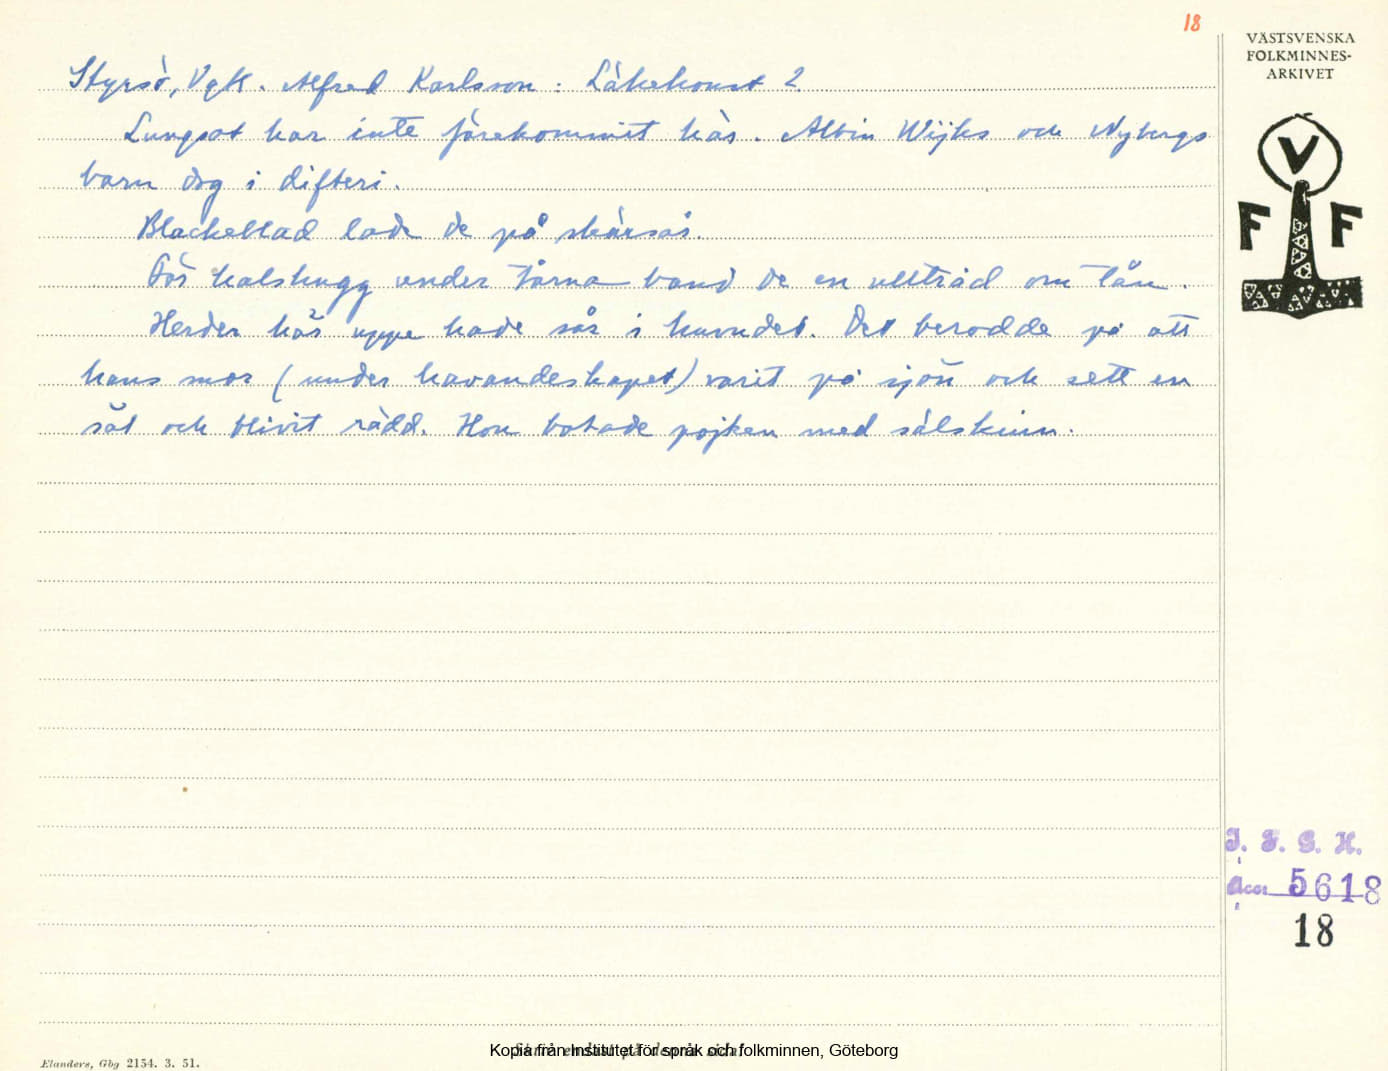 18
VÄSTSVENSKA
FOLKMINNES-
ARKIVET
V
F F
Styrsö, Vgk. Alfred Karlsson: Läkekonst 2
Lungsot har inte förekommit här. Albin Wijks och Nybergs
barn dog i difteri.
Blackeblad lade de på skärsår.
För halshugg under tårna band de en ulltråd om tån.
Herder här uppe hade sår i huvudet. Det berodde på att
hans mor (under havandeskapet) varit på sjön och sett en
säl och blivit rädd. Hon botade pojken med sälskinn.
I. F. G. H.
Acc. 5618
18
Elanders, Gbg 2154. 3. 51.
Kopia från Institutet för språk och folkminnen, Göteborg